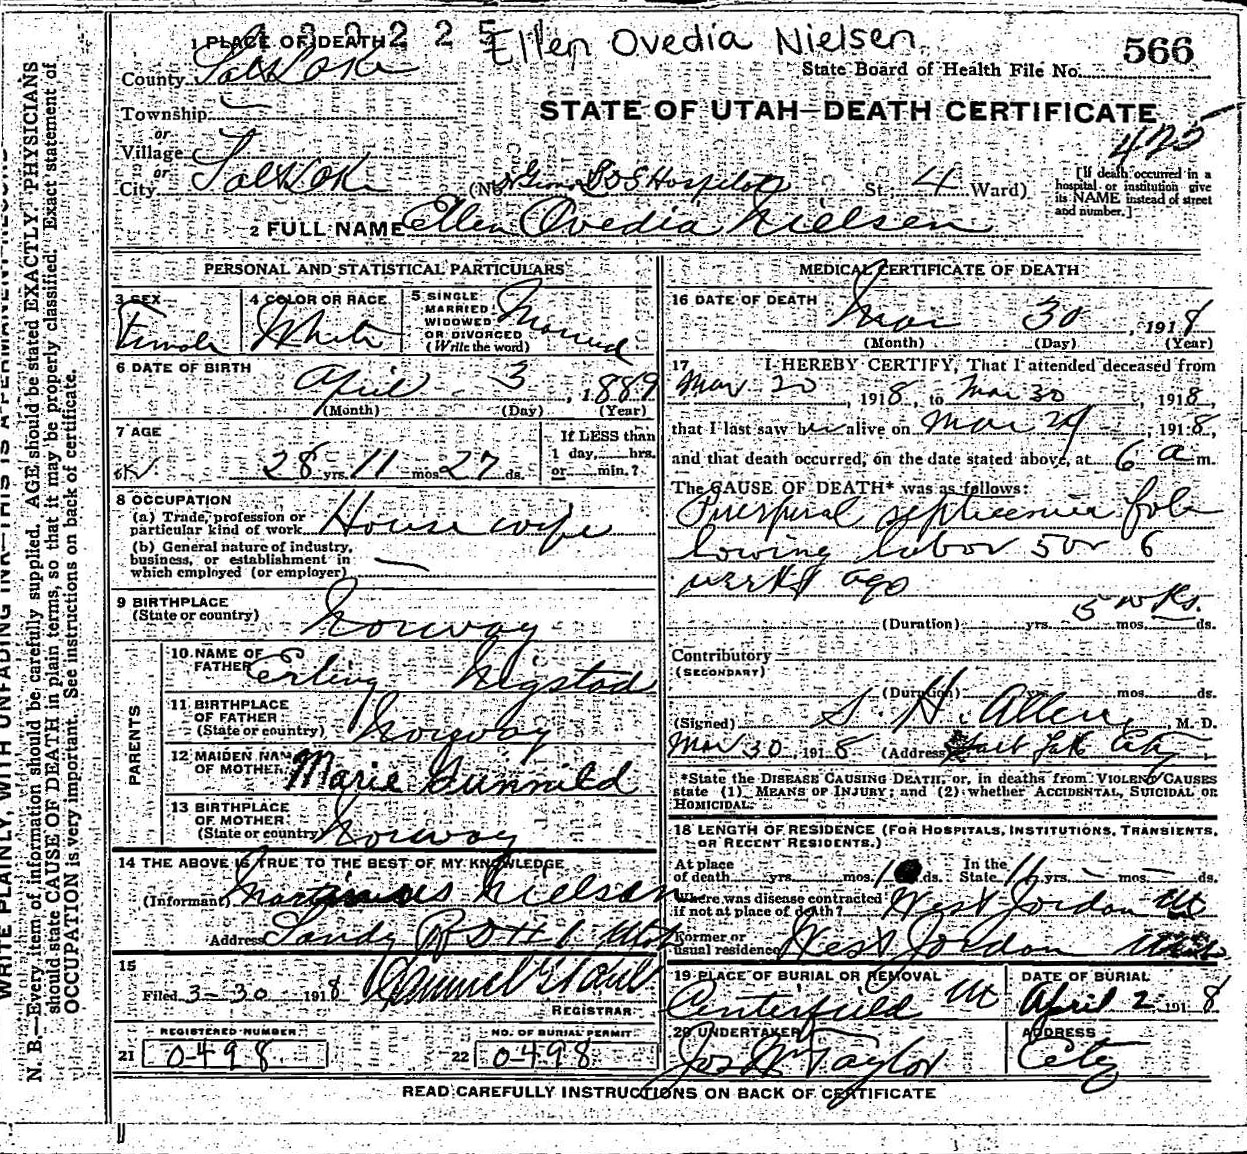 3 0 2 2 5
Ellen Ovedia Nielsen
1 PLACE OF DEATH
County Salt Lake
State Board of Health File No. 566
Township —
STATE OF UTAH—DEATH CERTIFICATE
or
Village
or
City Salt Lake (No. LDS Hospital St.; 4 Ward)
425
[If death occurred in a hospital or institution give its NAME instead of street and number.]
2 FULL NAME Ellen Ovedia Nielsen
PERSONAL AND STATISTICAL PARTICULARS
3 SEX
Female
4 COLOR OR RACE
White
5 SINGLE
MARRIED
WIDOWED
OR DIVORCED
(Write the word)
Married
6 DATE OF BIRTH
April 3, 1889
(Month) (Day) (Year)
7 AGE
28 yrs. 11 mos. 27 ds.
If LESS than
1 day, hrs.
or min.?
8 OCCUPATION
(a) Trade, profession or
particular kind of work Housewife
(b) General nature of industry,
business, or establishment in
which employed (or employer) —
9 BIRTHPLACE
(State or country) Norway
PARENTS
10 NAME OF
FATHER Erling Nigstad
11 BIRTHPLACE
OF FATHER
(State or country) Norway
12 MAIDEN NAME
OF MOTHER Marie Gunnild
13 BIRTHPLACE
OF MOTHER
(State or country) Norway
14 THE ABOVE IS TRUE TO THE BEST OF MY KNOWLEDGE
(Informant) Martinus Nielsen
Address Sandy R D # 1 Utah
15
Filed 3-30 1918
REGISTRAR
REGISTERED NUMBER
21 0498
NO. OF BURIAL PERMIT
22 0498
MEDICAL CERTIFICATE OF DEATH
16 DATE OF DEATH
Mar 30, 1918
(Month) (Day) (Year)
17 I HEREBY CERTIFY, That I attended deceased from
Mar 20, 1918, to Mar 30, 1918,
that I last saw her alive on Mar 29, 1918,
and that death occurred, on the date stated above, at 6 a m.
The CAUSE OF DEATH* was as follows:
Puerperal septicemia fol-
lowing labor 5 or 6
weeks ago
(Duration) yrs. mos. ds. 5 wks.
Contributory
(SECONDARY)
(Duration) yrs. mos. ds.
(Signed) S. H. Allen, M. D.
Mar 30, 1918 (Address) Salt Lake City
*State the DISEASE CAUSING DEATH, or, in deaths from VIOLENT CAUSES
state (1) MEANS OF INJURY; and (2) whether ACCIDENTAL, SUICIDAL OR
HOMICIDAL.
18 LENGTH OF RESIDENCE (FOR HOSPITALS, INSTITUTIONS, TRANSIENTS,
OR RECENT RESIDENTS.)
At place
of death yrs. mos. ds. In the
State 11 yrs. — mos. — ds.
Where was disease contracted
if not at place of death? West Jordan Ut
Former or
usual residence West Jordan Utah
19 PLACE OF BURIAL OR REMOVAL
Centerfield Ut
DATE OF BURIAL
April 2 1918
20 UNDERTAKER
Jos Wm Taylor
ADDRESS
City
READ CAREFULLY INSTRUCTIONS ON BACK OF CERTIFICATE
N. B.—Every item of information should be carefully supplied. AGE should be stated EXACTLY. PHYSICIANS
should state CAUSE OF DEATH in plain terms, so that it may be properly classified. Exact statement of
OCCUPATION is very important. See instructions on back of certificate.
WRITE PLAINLY, WITH UNFADING INK—THIS IS A PERMANENT RECORD